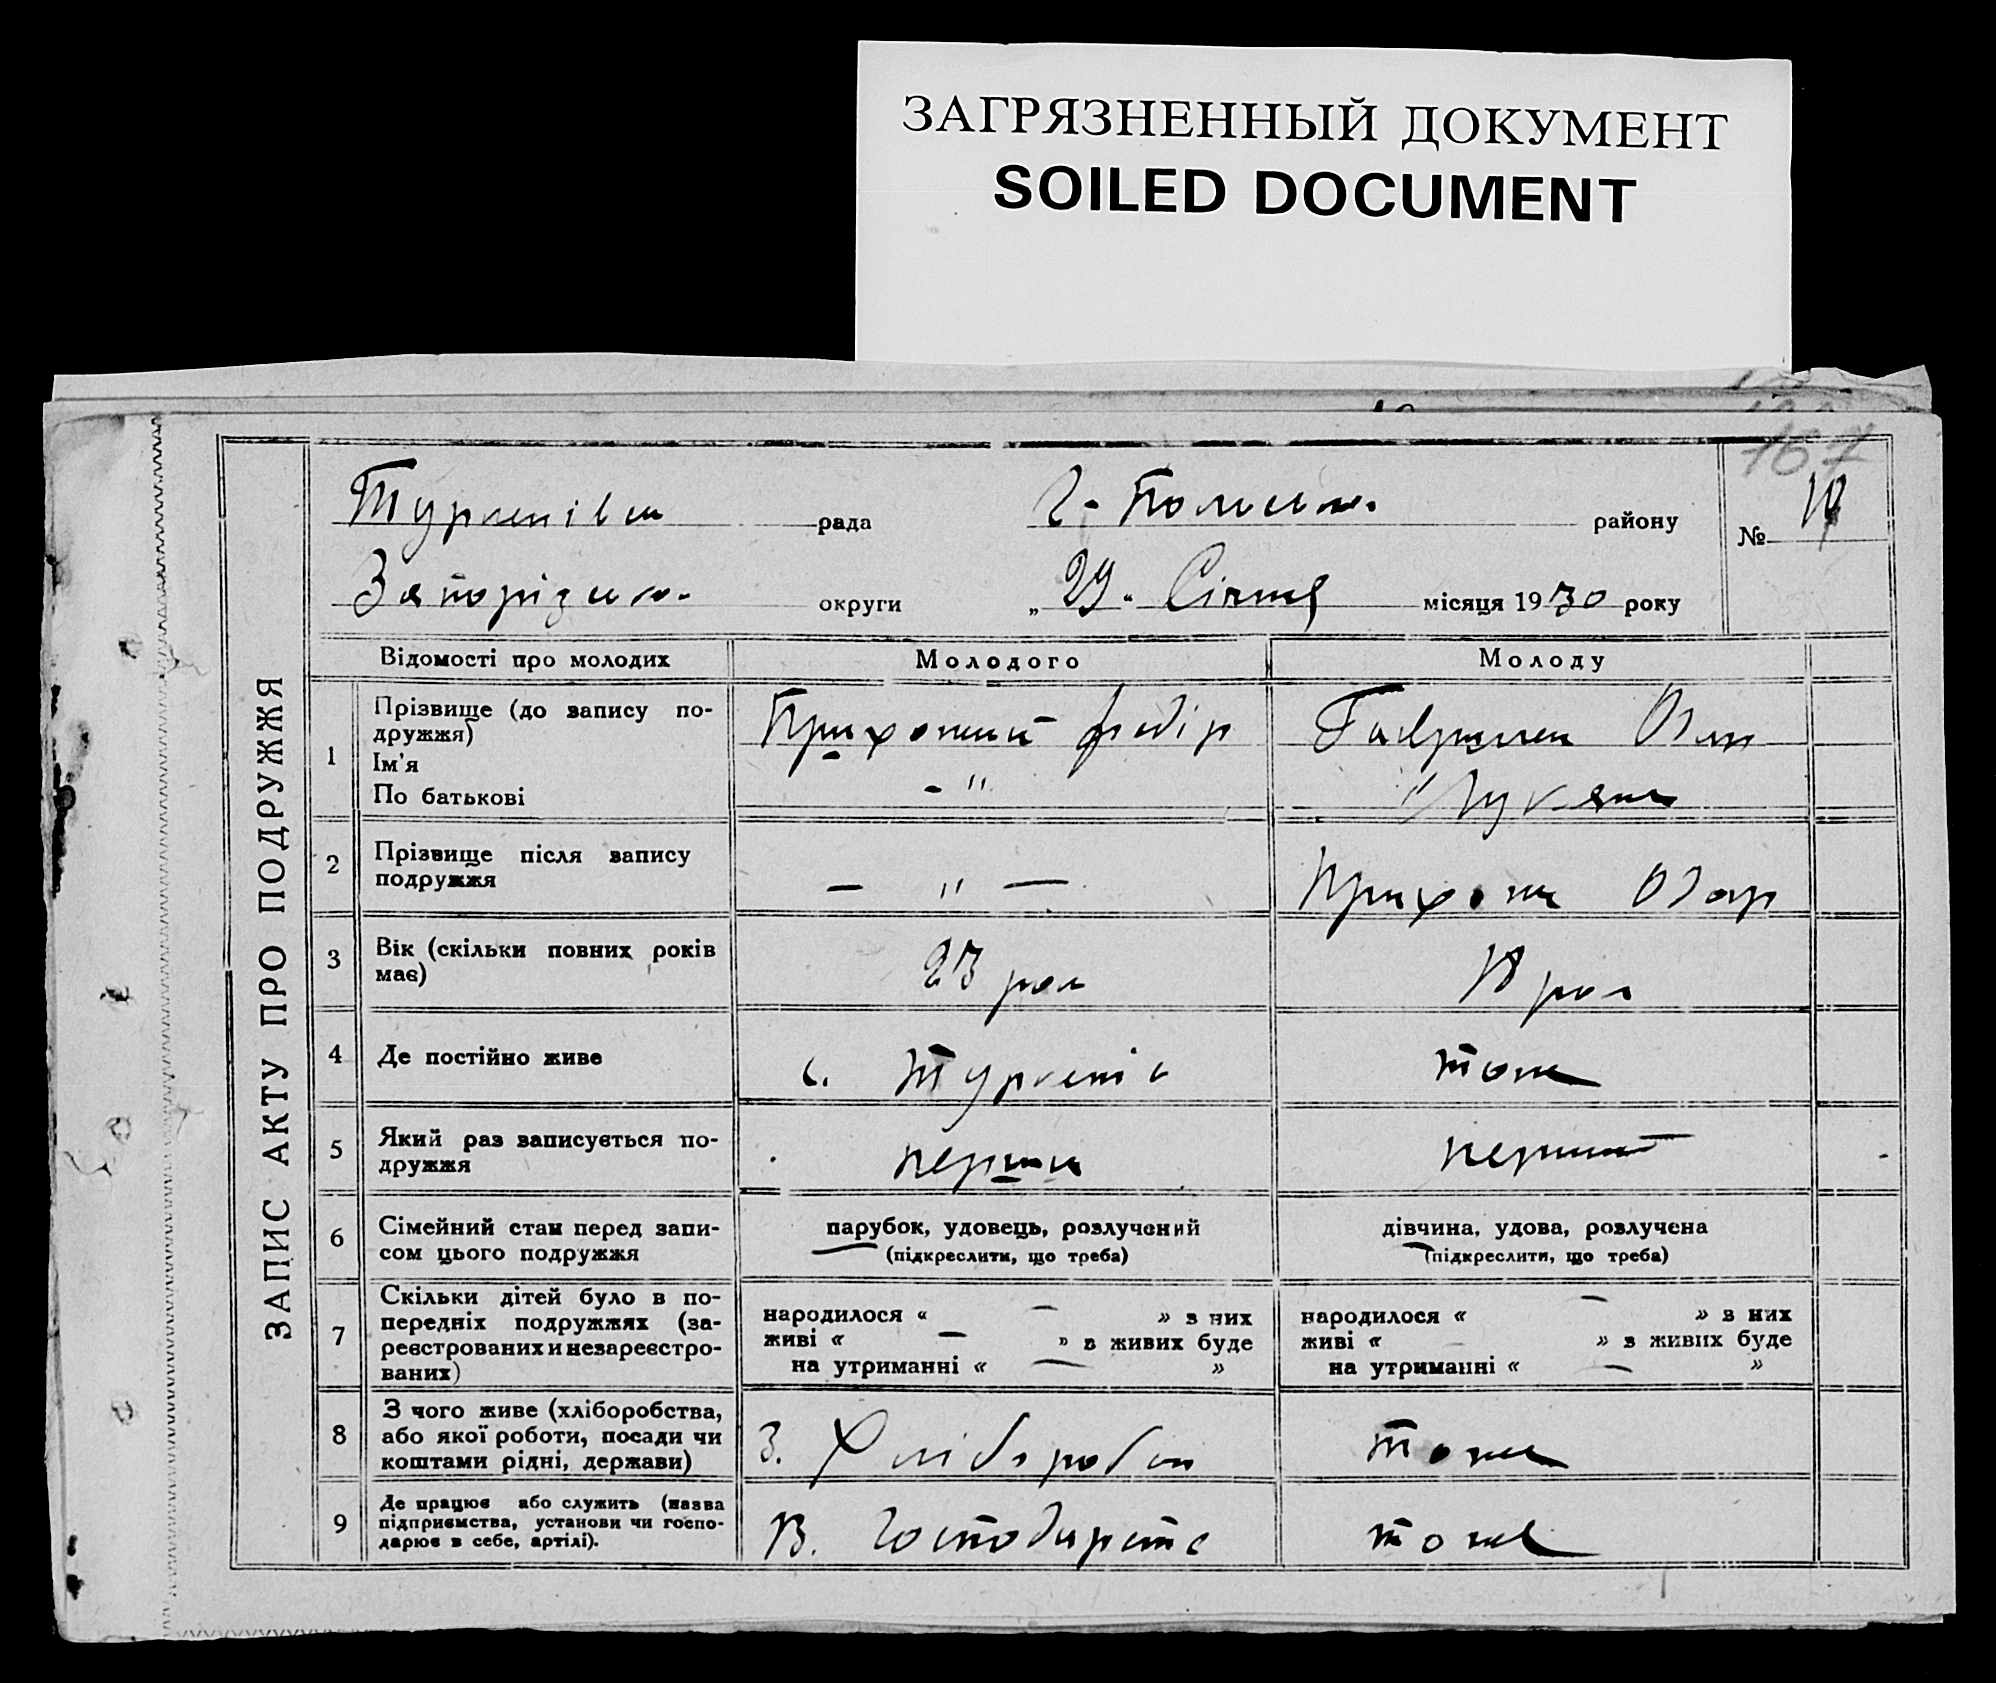 ЗАГРЯЗНЕННЫЙ ДОКУМЕНТ
SOILED DOCUMENT
167
рада
району
№
округи
„29“ Січня місяця 1930 року
ЗАПИС АКТУ ПРО ПОДРУЖЖЯ
Відомості про молодих
Молодого
Молоду
1
Прізвище (до запису по-
дружжя)
Ім'я
По батькові
Федір
- "
2
Прізвище після запису
подружжя
— " —
3
Вік (скільки повних років
має)
23 рок
18 рок
4
Де постійно живе
с.
тоже
5
Який раз записується по-
дружжя
перший
перший
6
Сімейний стан перед запи-
сом цього подружжя
парубок, удовець, розлучений
(підкреслити, що треба)
дівчина, удова, розлучена
(підкреслити, що треба)
7
Скільки дітей було в по-
передніх подружжях (за-
реєстрованих и незареєстро-
ваних)
народилося « — » з них
живі « — » в живих буде
на утриманні « — »
народилося « — » з них
живі « — » з живих буде
на утриманні « — »
8
З чого живе (хліборобства,
або якої роботи, посади чи
коштами рідні, держави)
З. Хлібороб
тоже
9
Де працює або служить (назва
підприємства, установи чи госпо-
дарює в себе, артілі).
В. господарств
тоже